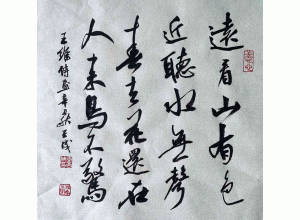 遠看山有色
近聽水無聲
春去花還在
人來鳥不驚
王維詩畫